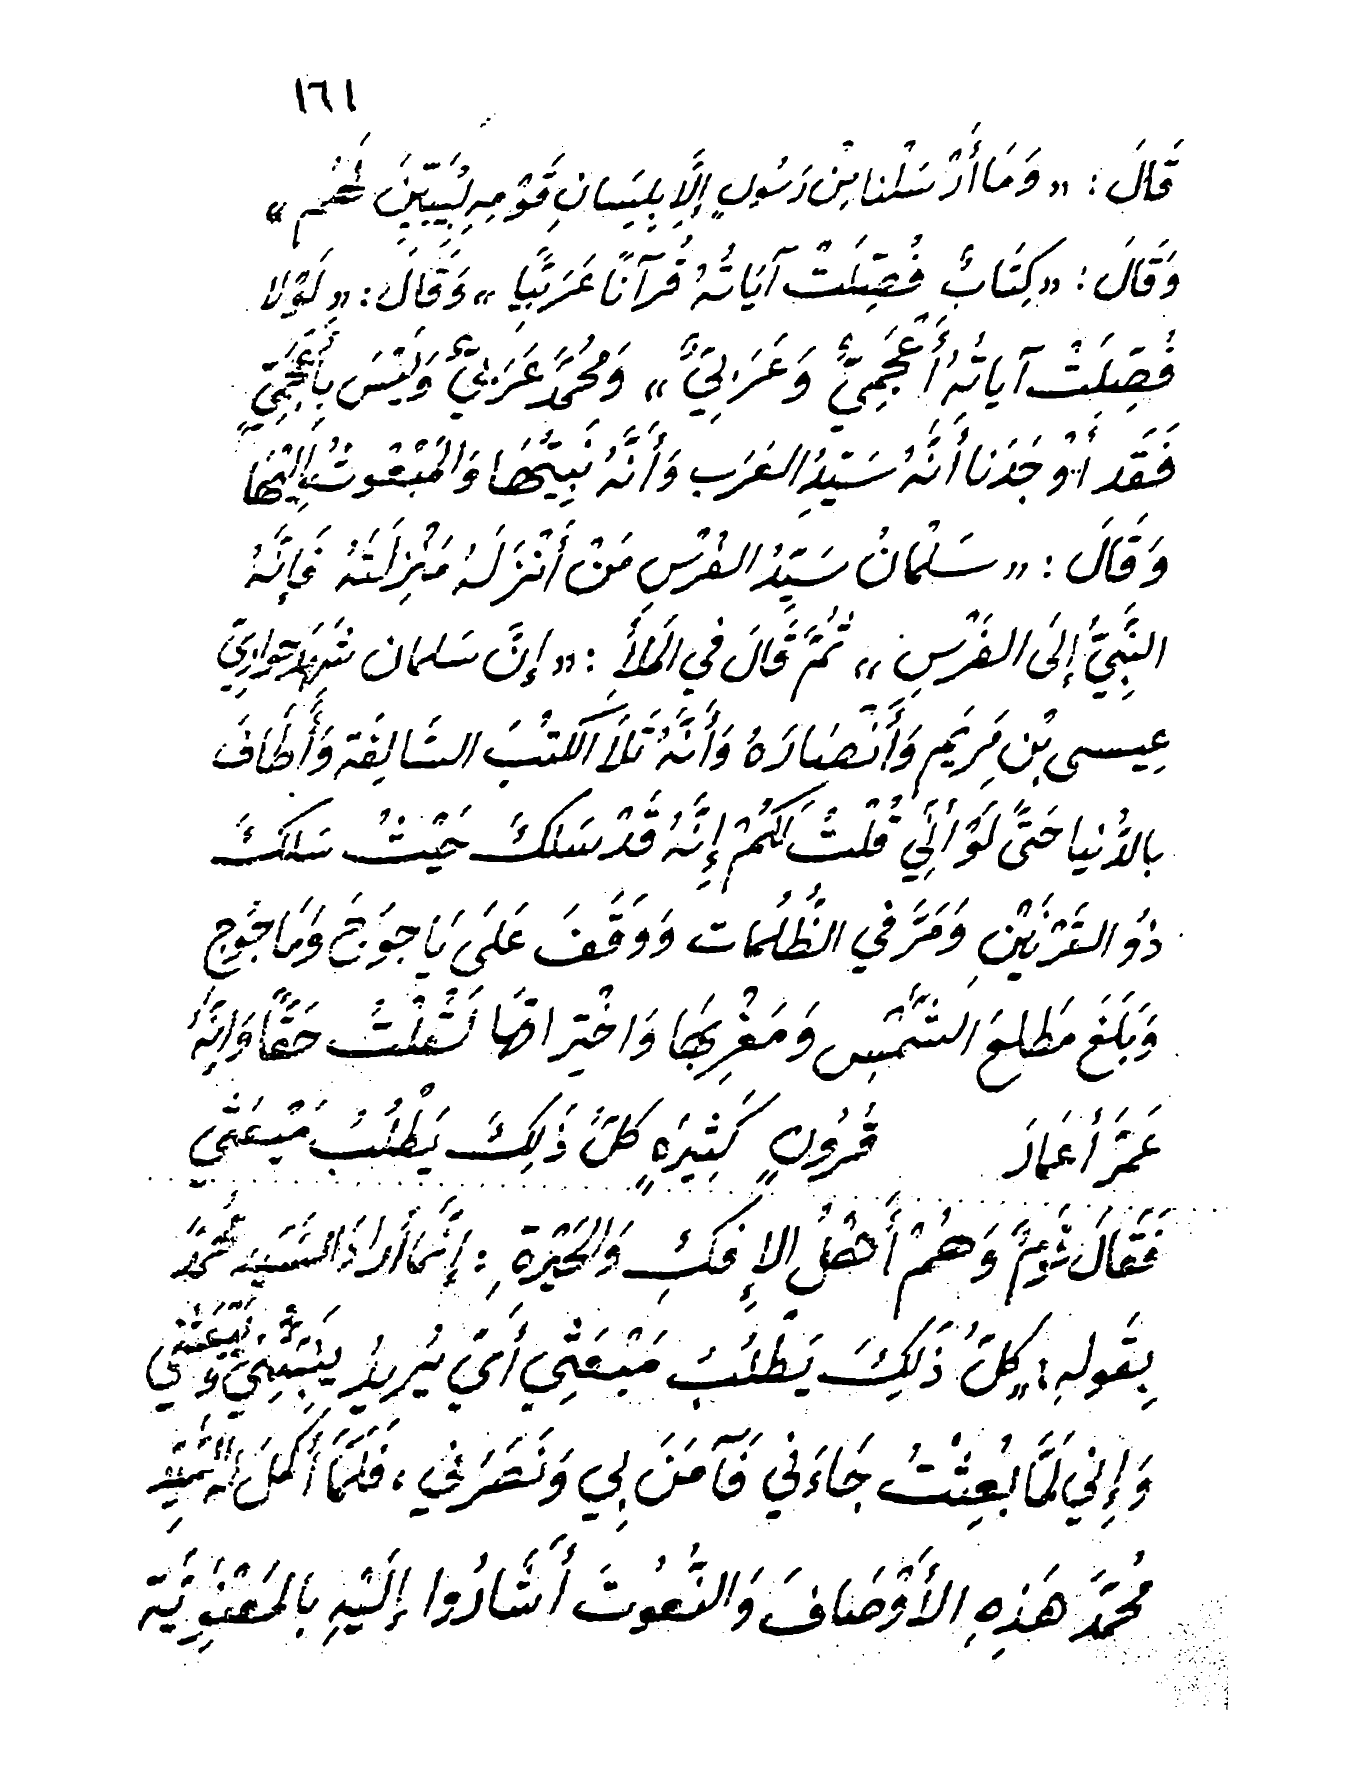 ١٦١
قَالَ : « وَمَا أَرْسَلْنا مِنْ رَسُولٍ إِلَّا بِلِسَانِ قَوْمِهِ لِيُبَيِّنَ لَهُم »
وَقَالَ : « كِتَابٌ فُصِّلَتْ آيَاتُهُ قُرآنًا عَرَبيًّا » وَقَالَ : « لَوْلا
فُصِّلَتْ آياتُهُ أَعْجَمِيٌّ وَعَرَبِيٌّ » وَمُحَمَّد عَرَبيٌّ وَلَيْسَ بِأَعْجَمِيٍّ
فَقَد أَوْجَدَنا أَنَّهُ سَيِّدُ العَرَب وَأَنَّهُ نَبِيُّهَا وَالمَبْعُوثُ إِلَيْهَا
وَقَالَ : « سَلْمَانُ سَيِّدُ الفُرْسِ مَنْ أَنْزَلَهُ مَنْزِلَتَهُ فَإِنَّهُ
النَّبِيُّ إِلَى الفُرْسِ » ثُمَّ قَالَ فِي المَلَأِ : « إِنَّ سَلمان شَهِدَ حواريّ
عِيسى بْنِ مَرْيَم وَأَنْصَارَهُ وَأَنَّهُ تَلَا الكتُبَ السَّالِفَة وَأَطَافَ
بالدُّنيا حَتَّى لَوْ أَنِّي قُلْتُ لَكُمْ إِنَّهُ قَدْ سَلكَ حَيْثُ سَلكَ
ذُو القَرْنَيْنِ وَمَرَّ في الظُّلُمات وَوَقَفَ عَلَى يَاجوجَ وَمَاجُوج
وَبَلَغَ مَطلعَ الشَّمْسِ وَمَغْرِبَهَا وَاخْتِراقَهَا لَقُلْتُ حَقًّا وَإنَّهُ
عَمَّرَ أَعْمَارَ قُرُونٍ كَثِيرَةٍ كلّ ذَلِكَ يَطْلُبُ مَبْعَثي
فَقَالَ قَوْمٌ وَهُمْ أَهْلُ الإِفكِ وَالحَيْرَةِ : إِنَّما أَرادَ السَّيِّد مُحَمَّد
بِقَولِهِ : « كلّ ذَلِكَ يَطْلُبُ مَبْعَثِي أَيْ يُرِيدُ يَنْبَغِي
وَإِني لَمَّا بُعِثْتُ جَاءَني فَآمَنَ بِي وَنَصَرَني ، فَلَمَّا أَكْمَلَ لَهُ السَّيِّد
مُحَمَّد هَذِهِ الأَوْصَافَ وَالنُّعُوتَ أَشَارُوا إِلَيْهِ بِالمَعْنَوِيَّة